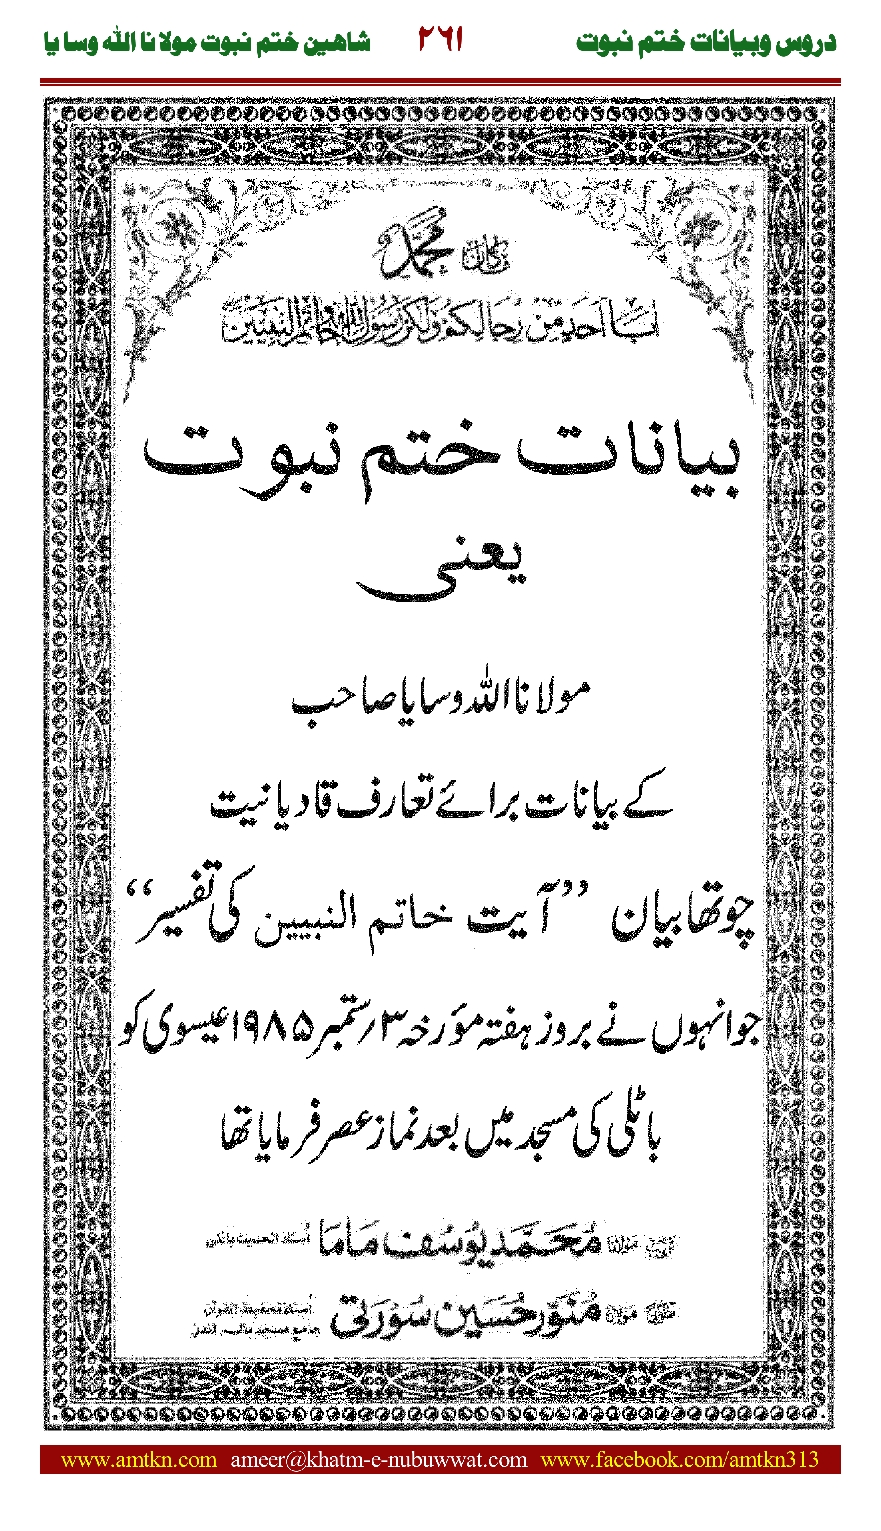 دروس وبیانات ختم نبوت ۲۶۱ شاھین ختم نبوت مولانا اللہ وسایا
ماکان محمد
ابا احد من رجالکم ولکن رسول اللہ وخاتم النبیین
بیانات ختم نبوت
یعنی
مولانا اللہ وسایا صاحب
کے بیانات برائے تعارف قادیانیت
چوتھا بیان ”آیت خاتم النبیین کی تفسیر“
جو انہوں نے بروز ہفتہ مؤرخہ ۳/ستمبر ۱۹۸۵ عیسوی کو
باٹلی کی مسجد میں بعد نماز عصر فرمایا تھا
مولانا محمد یوسف ماما
مولانا منور حسین سورتی
www.amtkn.com ameer@khatm-e-nubuwwat.com www.facebook.com/amtkn313